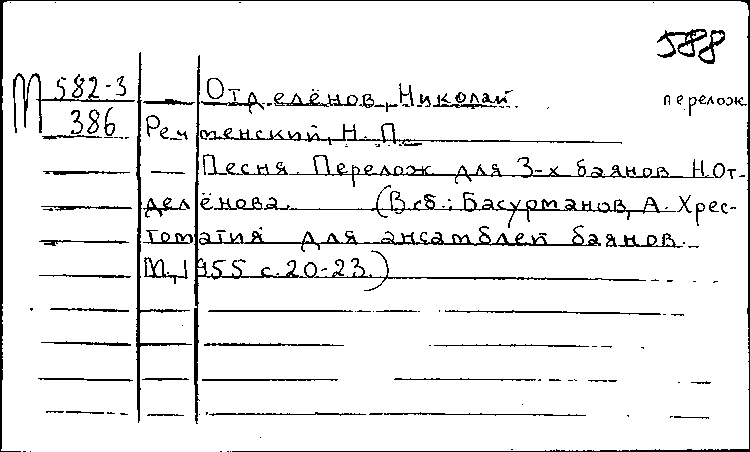 588
М 582-3 Отделёнов, Николай перелож
386 Речменский, Н. П.
Песня. Перелож для 3-х баянов Н. От-
делёнова. (В сб.: Басурманов, А. Хрес-
томатия для ансамблей баянов.
М., 1955 с. 20-23.)